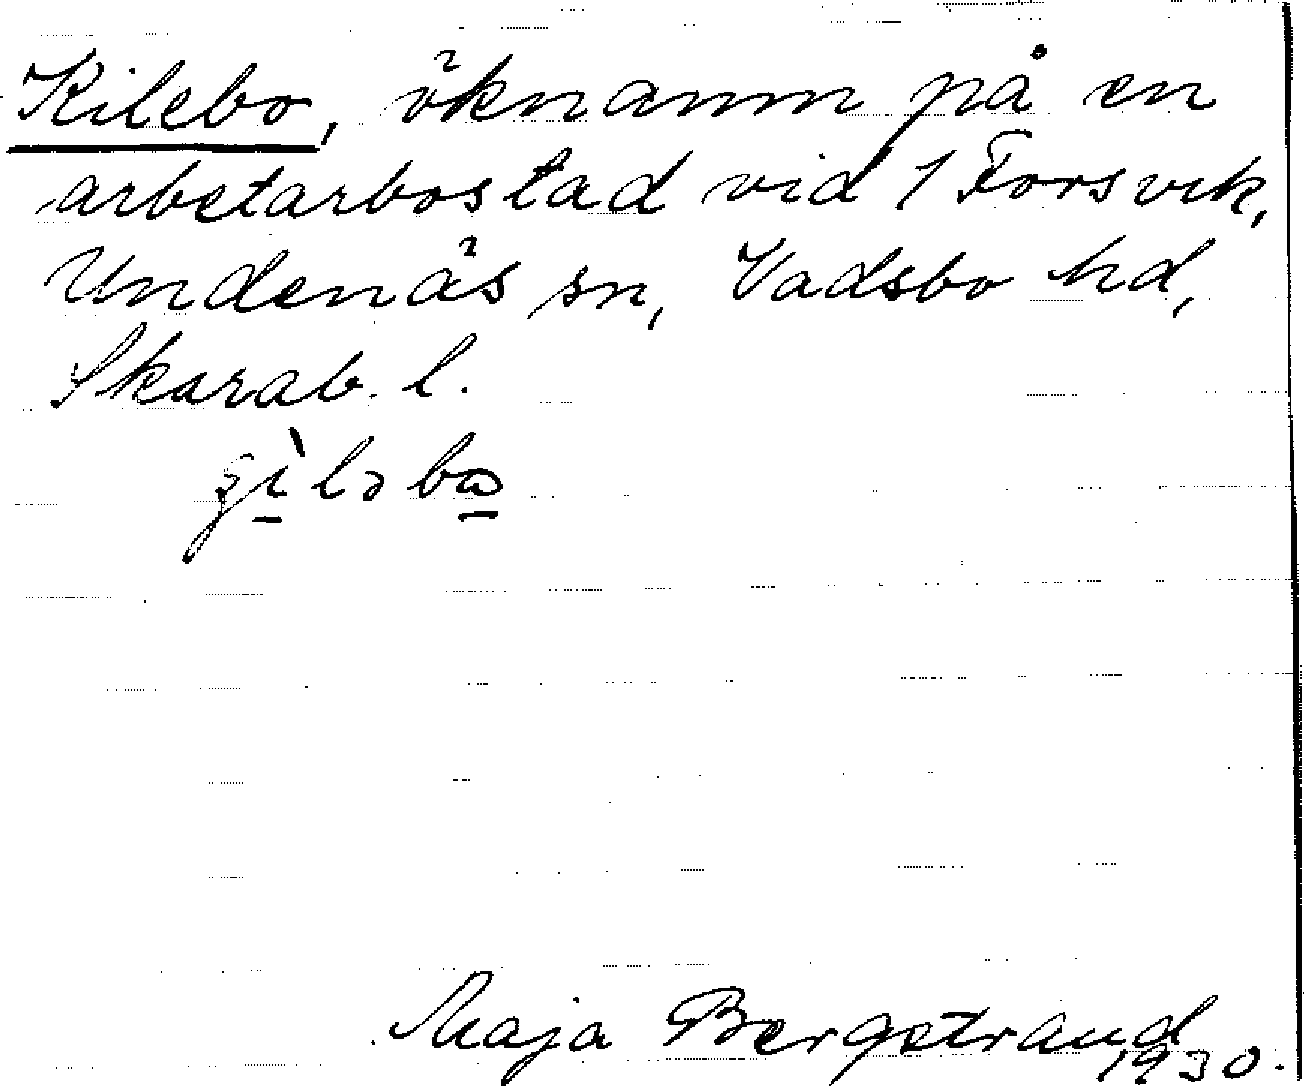 Kilebo, öknamn på en
arbetarbostad vid 1 Forsvik,
Undenäs sn, Vadsbo hd,
Skarab. l.
Maja Bergstrand
1930.